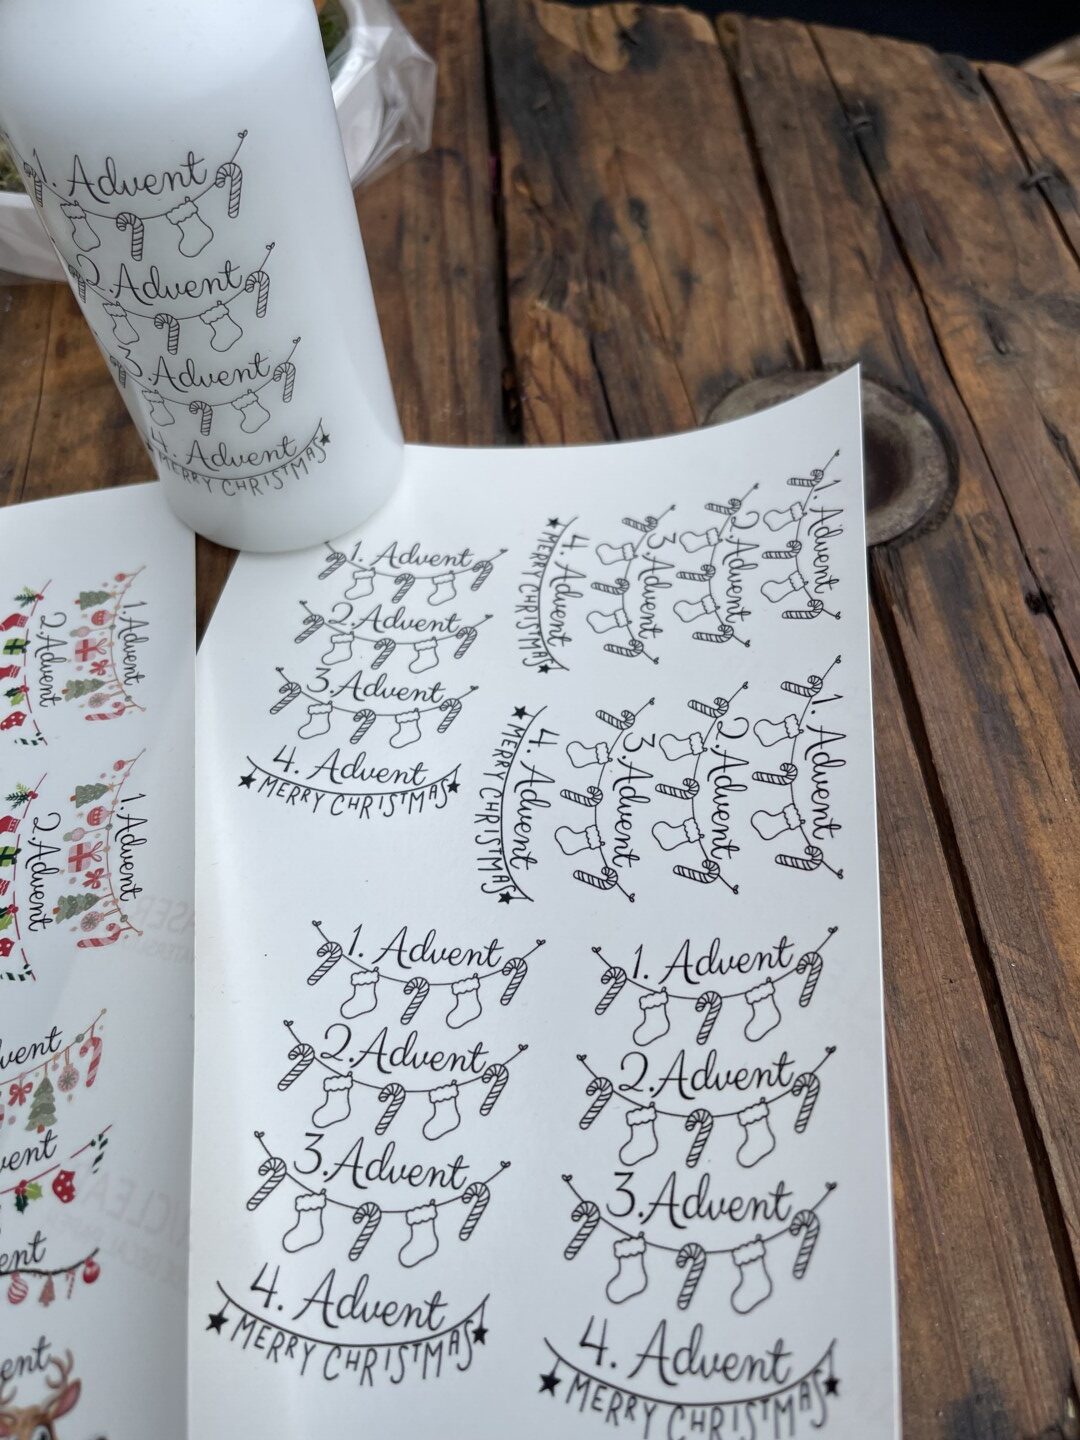 1. Advent
2. Advent
3. Advent
4. Advent
MERRY CHRISTMAS
1. Advent
2. Advent
3. Advent
4. Advent
MERRY CHRISTMAS
1. Advent
2. Advent
3. Advent
4. Advent
MERRY CHRISTMAS
1. Advent
2. Advent
3. Advent
4. Advent
MERRY CHRISTMAS
1. Advent
2. Advent
3. Advent
4. Advent
MERRY CHRISTMAS
1. Advent
2. Advent
3. Advent
4. Advent
MERRY CHRISTMAS
1. Advent
2. Advent
1. Advent
2. Advent
vent
vent
ent
ent